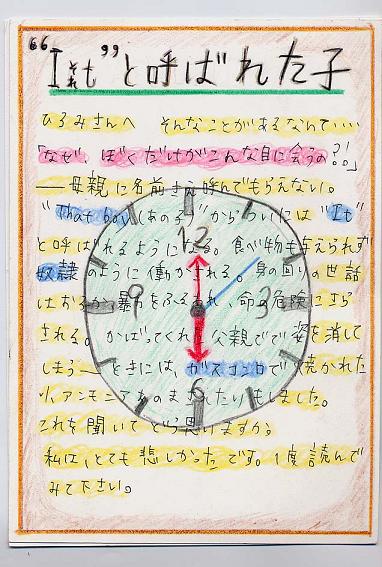 “It それ も”と呼ばれた子
ひろみさんへ そんなことがあるなんて・・・
「なぜ、ぼくだけがこんな目に会うの?!」
——母親に名前さえ呼んでもらえない。
“That boy（あの子）”からついには“It”
と呼ばれるようになる。食べ物も与えられず
奴隷のように働かされる。身の回りの世話
はおろか、暴力をふるわれ、命の危険にさら
される。かばってくれた父親でで姿を消して
しまう——ときには、ガスコンロで焼かれた
り、アンモニアをのまされたりもしました。
これを聞いてどう思いますか。
私は、とても悲しかったです。1度読んで
みて下さい。
12
9
3
6